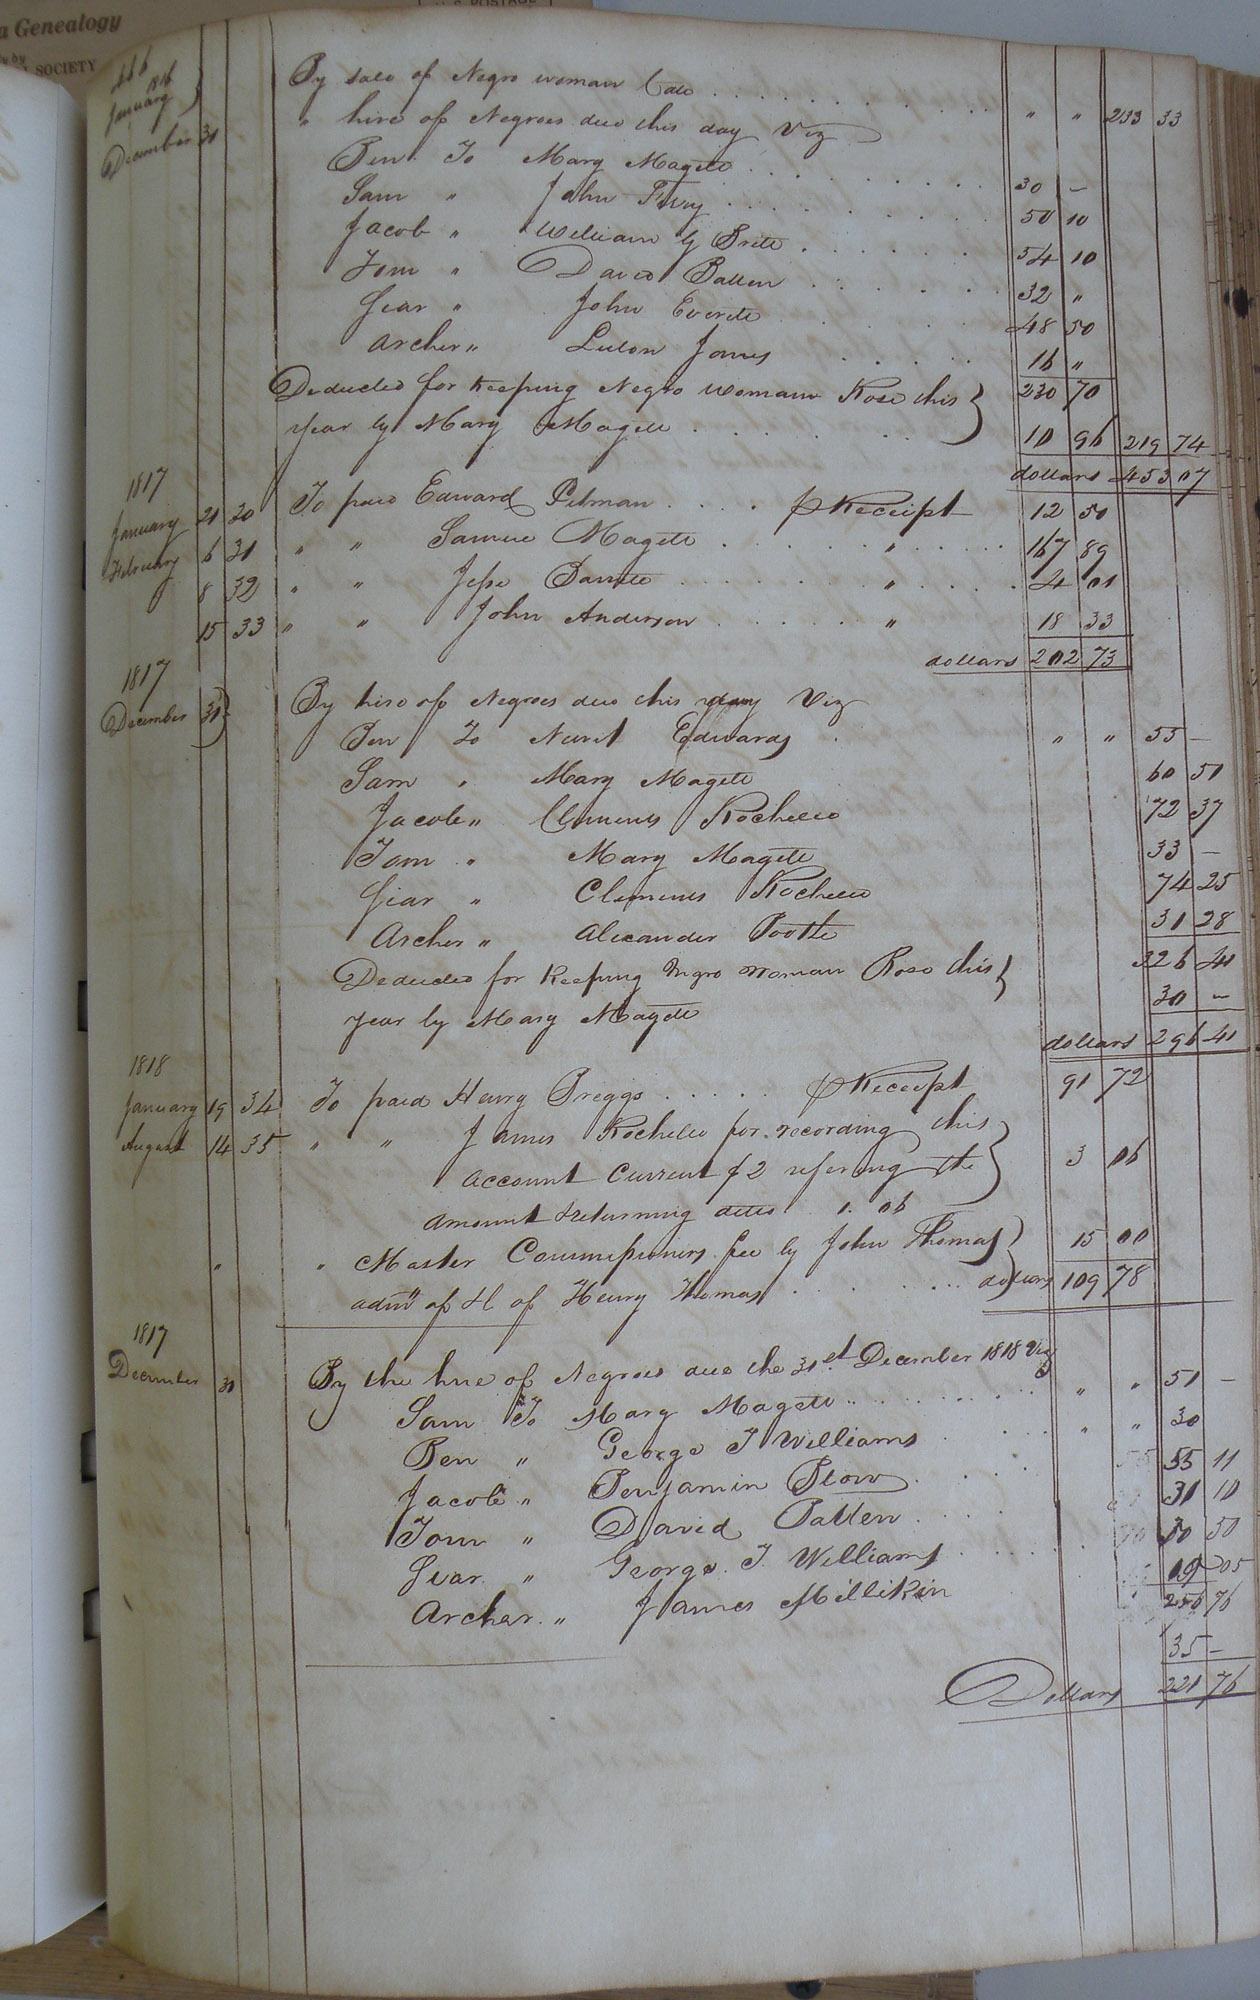 a Genealogy
SOCIETY
POSTAGE
446
1816
January
By sale of Negro woman Cate . . . . " " 233 33
December 31 " hire of Negroes due this day Viz
Ben To Mary Magett . . . . 30 —
Sam " John Ivey . . . . 50 10
Jacob " William G Britt . . . . 54 10
Tom " David Batten . . . . 32 "
Gear " John Everett . . . . 48 50
Archer " Luton Jones . . . . 16 "
230 70
Deducted for keeping Negro woman Rose this
year by Mary Magett . . . . 10 96 219 74
dollars 453 07
1817
January 21 30 To paid Edward Pitman . . . . p Receipt 12 50
February 6 31 " " Samue Magett . . . . " 167 89
8 32 " " Jesse Barrett . . . . " 4 01
15 33 " " John Anderson . . . . " 18 33
dollars 202 73
1817
December 31 By hire of Negroes due this day Viz
Ben To Newit Edwards " " 55 —
Sam " Mary Magett 60 51
Jacob " Clements Rochelle 72 37
Tom " Mary Magett 33 —
Gear " Clements Rochelle 74 25
Archer " Alexander Pootle 31 28
326 41
Deducted for keeping Negro woman Rose this
year by Mary Magett 30 —
dollars 296 41
1818
January 19 34 To paid Henry Briggs . . . . p Receipt 91 72
August 14 35 " " James Rochelle for recording this
account Current $2 refering the 3 06
amount & returning ditto 1. 06
" " Master Commissioners fee by John Thomas 15 00
admr of H of Henry Thomas . . . . dollars 109 78
1817
December 31 By the hire of Negroes due the 31st December 1818 Viz
Sam To Mary Magett . . . . " " 51 —
Ben " George T Williams . . . . " " 30
Jacob " Benjamin Stow . . . . 55 11
Tom " David Batten . . . . 31 10
Gear " George T. Williams . . . . 50
Archer " James Millikin 05
256 76
35 —
Dollars 221 76